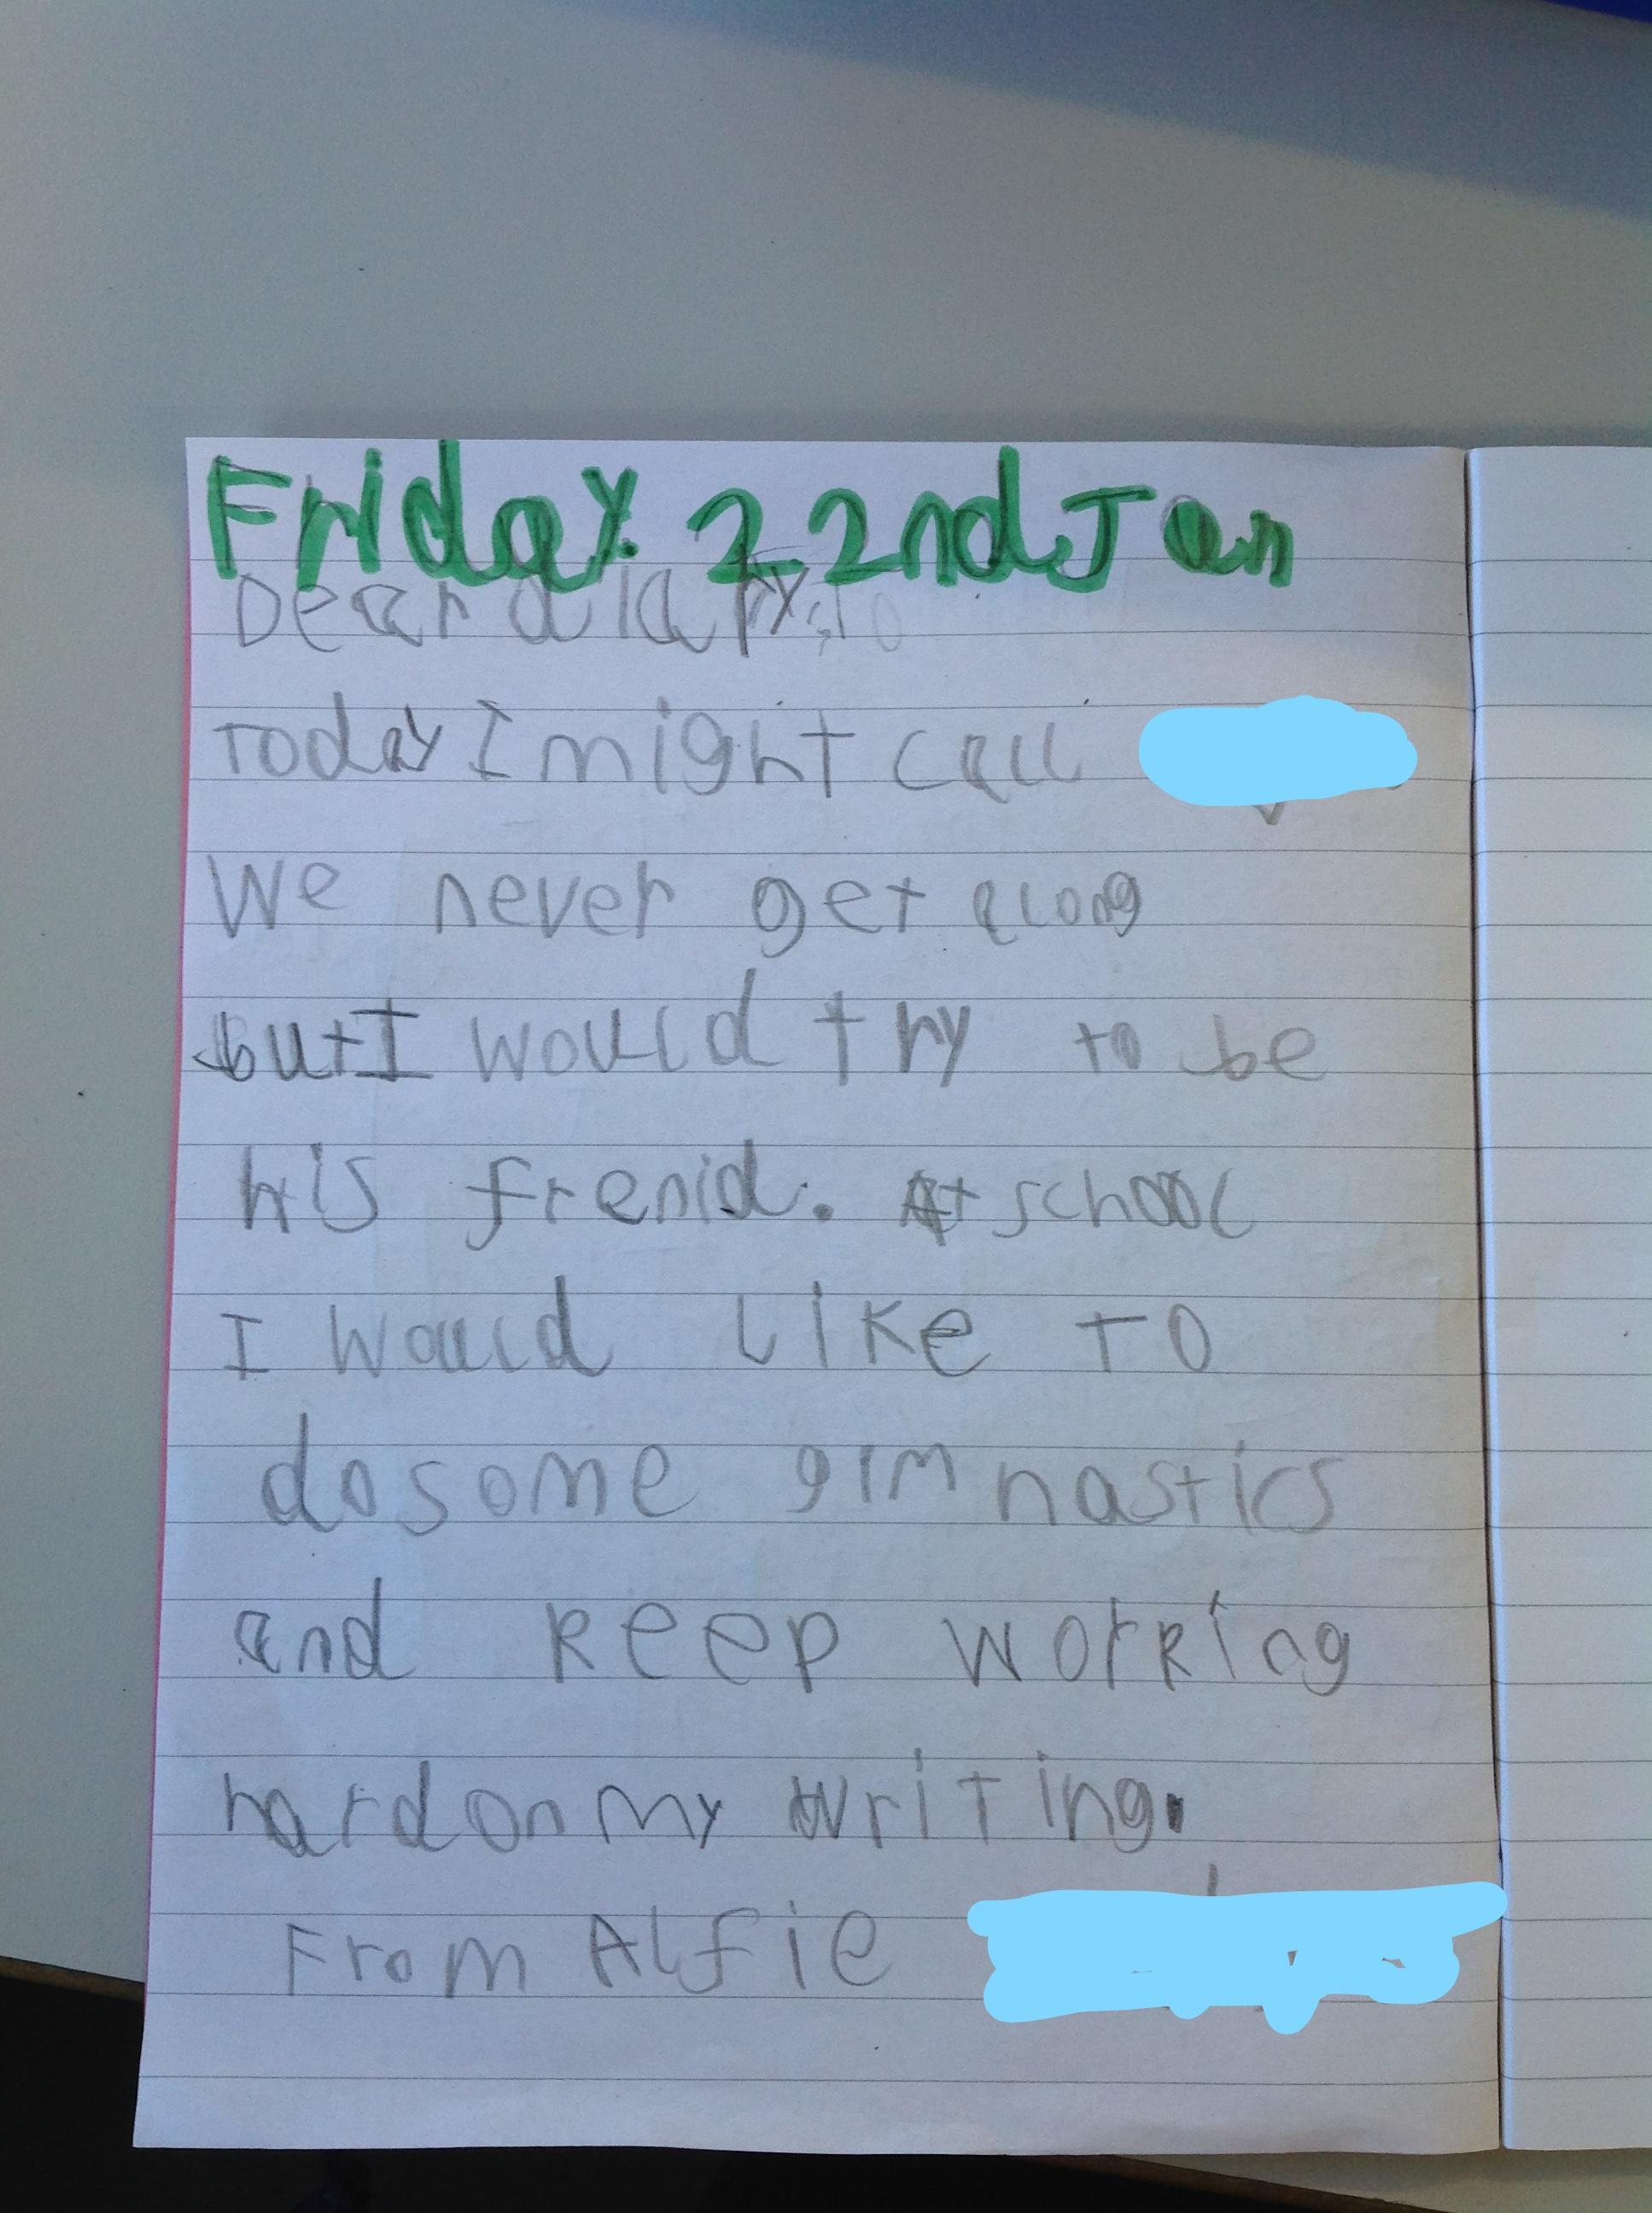 Friday 22nd Jan
Dear diary,
Today I might call
We never get along
but I would try to be
his frenid. At school
I would like to
do some gimnastics
and keep working
hard on my writing.
From Alfie